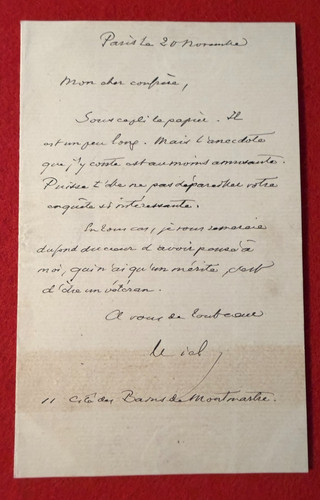 Paris le 20 Novembre
Mon cher confrère,
Sous ce pli le papier. Il
est un peu long. Mais l'anecdote
que j'y conte est au moins amusante.
Puisse t'elle ne pas déparer votre
enquête si intéressante.
En tout cas, je vous remercie
du fond du cœur d'avoir pensé à
moi, qui n'ai qu'un mérite, c'est
d'être un vétéran.
A vous de tout cœur
11 Cité des Bains de Montmartre.